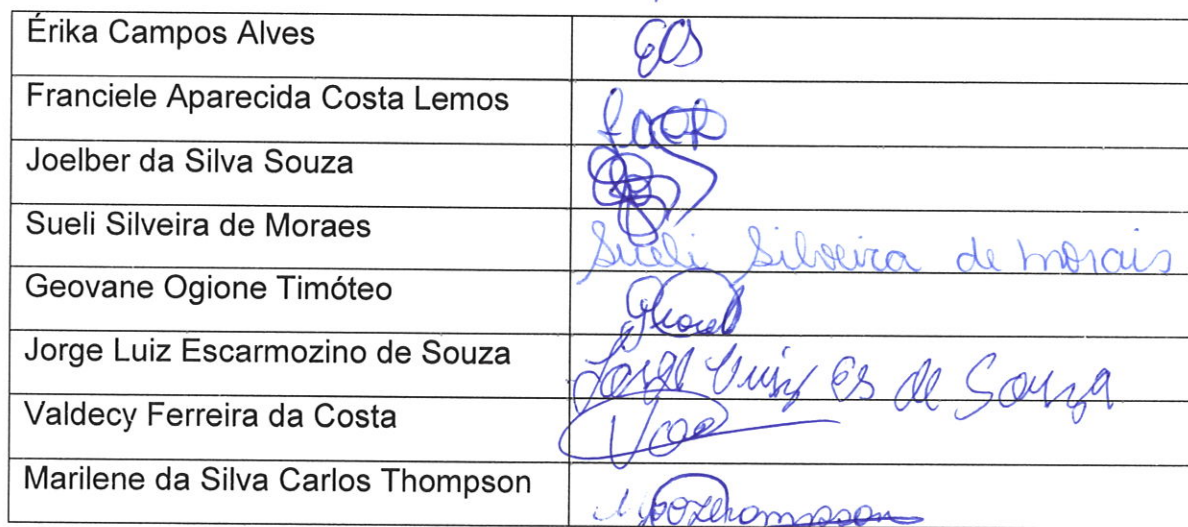 Érika Campos Alves
Franciele Aparecida Costa Lemos
Joelber da Silva Souza
Sueli Silveira de Moraes Sueli Silveira de Morais
Geovane Ogione Timóteo
Jorge Luiz Escarmozino de Souza Jorge Luiz Es de Souza
Valdecy Ferreira da Costa
Marilene da Silva Carlos Thompson Thompson